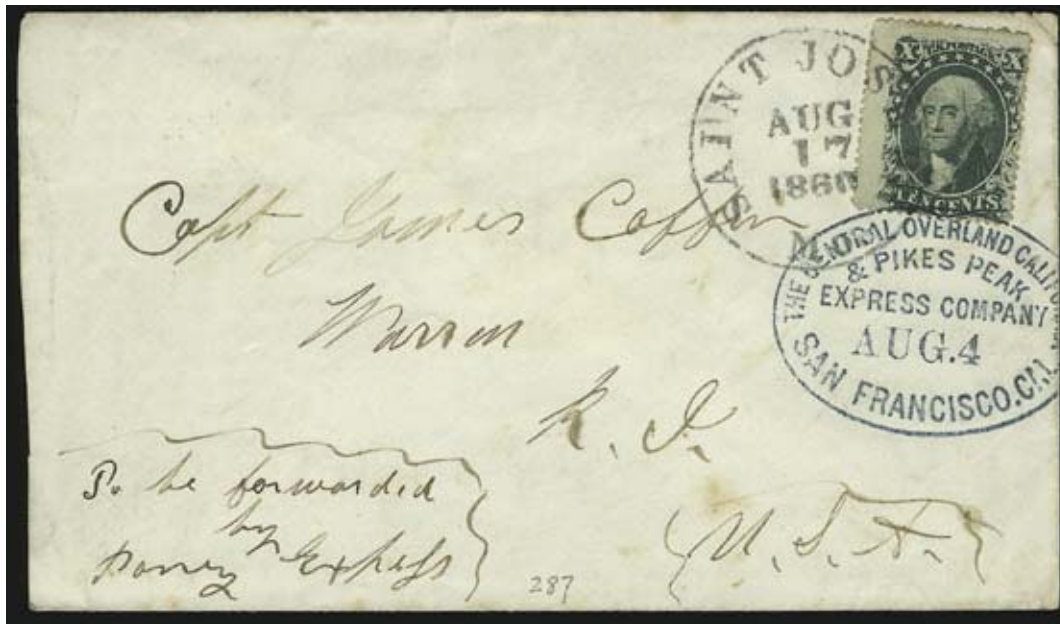 SAINT JOS
AUG
17
1860
MO.
X U.S. POSTAGE X
TEN CENTS
THE CENTRAL OVERLAND CALIFO
& PIKES PEAK
EXPRESS COMPANY
AUG. 4
SAN FRANCISCO. CAL.
Capt James Coffin
Warren
R. I.
U. S. A.
To be forwarded
by
Poney Express
287